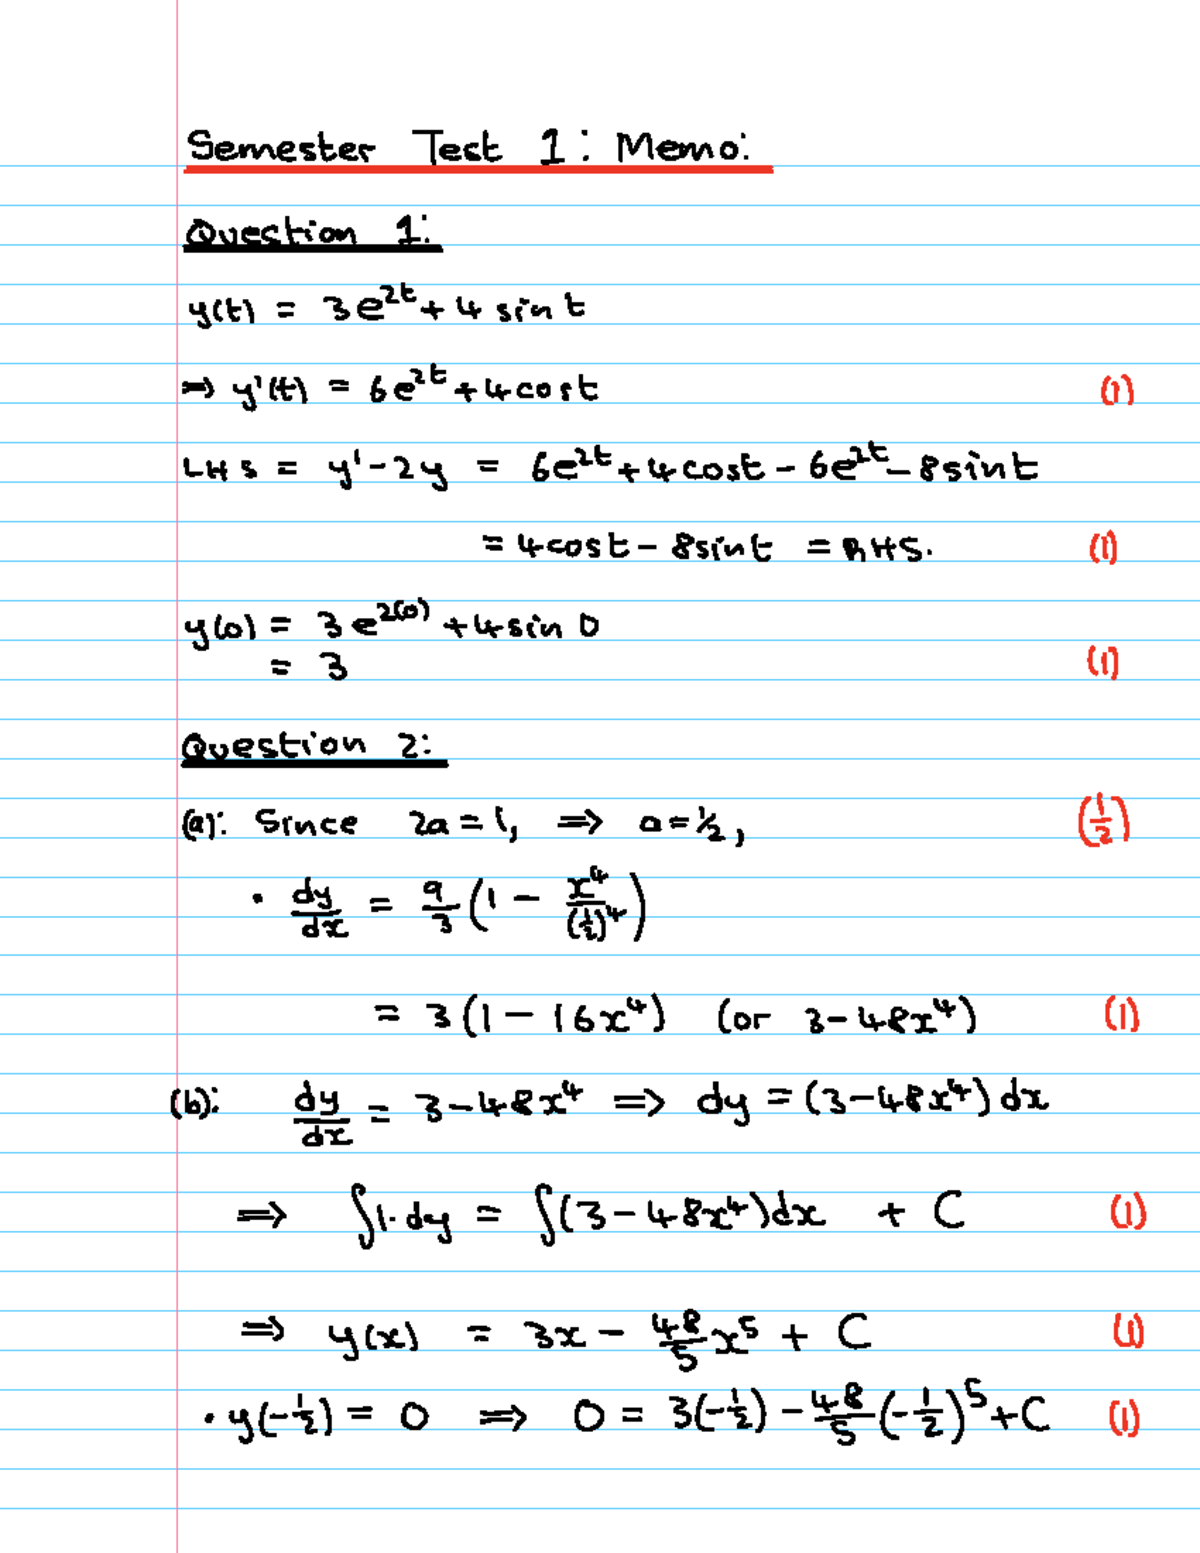 Semester Test 1: Memo:
Question 1:
y(t) = 3e^{2t} + 4 sin t
⇒ y'(t) = 6e^{2t} + 4cost (1)
LHS = y' - 2y = 6e^{2t} + 4cost - 6e^{2t} - 8sint
= 4cost - 8sint = RHS. (1)
y(0) = 3e^{2(0)} + 4sin 0
= 3 (1)
Question 2:
(a): Since 2a = 1, ⇒ a = ½, (1/2)
• dy/dx = 9/3 (1 - x^4/(1/2)^4)
= 3(1 - 16x^4) (or 3 - 48x^4) (1)
(b): dy/dx = 3 - 48x^4 ⇒ dy = (3 - 48x^4) dx
⇒ ∫1·dy = ∫(3 - 48x^4)dx + C (1)
⇒ y(x) = 3x - 48/5 x^5 + C (1)
• y(-1/2) = 0 ⇒ 0 = 3(-1/2) - 48/5 (-1/2)^5 + C (1)